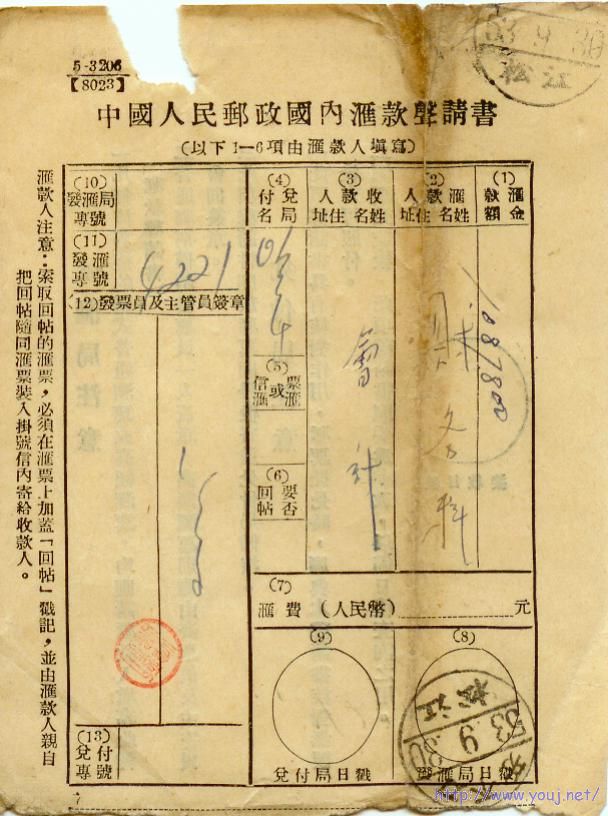 5-3206
【8023】
53.9.30
松江
中國人民郵政國內滙款聲請書
(以下1—6項由滙款人填寫)
(1)
滙款金額
1087800
(2)
滙款人姓名住址
財務科
(3)
收款人姓名住址
會計
(4)
兌付局名
(5)
票滙或信滙
(6)
要否回帖
(7)
滙費 (人民幣) 元
(8)
發滙局日戳
松江
53.9.30
(9)
兌付局日戳
(10)
發滙局專號
(11)
發滙專號
4221
(12)發票員及主管員簽章
(13)
兌付專號
滙款人注意：索取回帖的滙票，必須在滙票上加蓋「回帖」戳記，並由滙款人親自
把回帖隨同滙票裝入掛號信內寄給收款人。
http://www.youj.net/